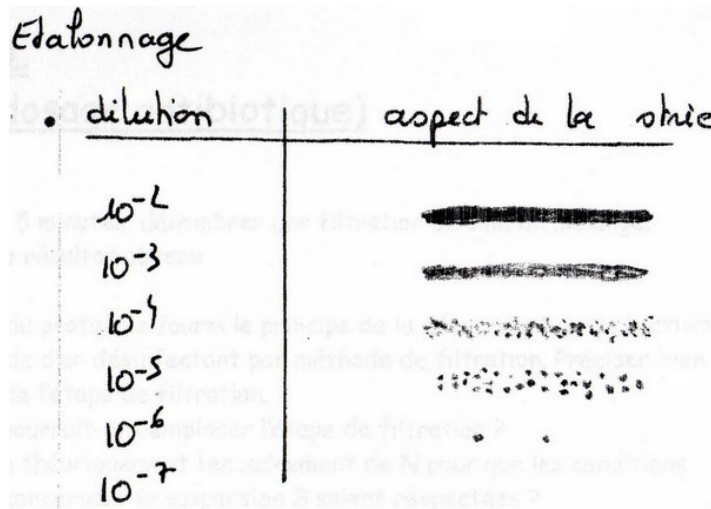 Etalonnage
• dilution aspect de la strie
10⁻²
10⁻³
10⁻⁴
10⁻⁵
10⁻⁶
10⁻⁷